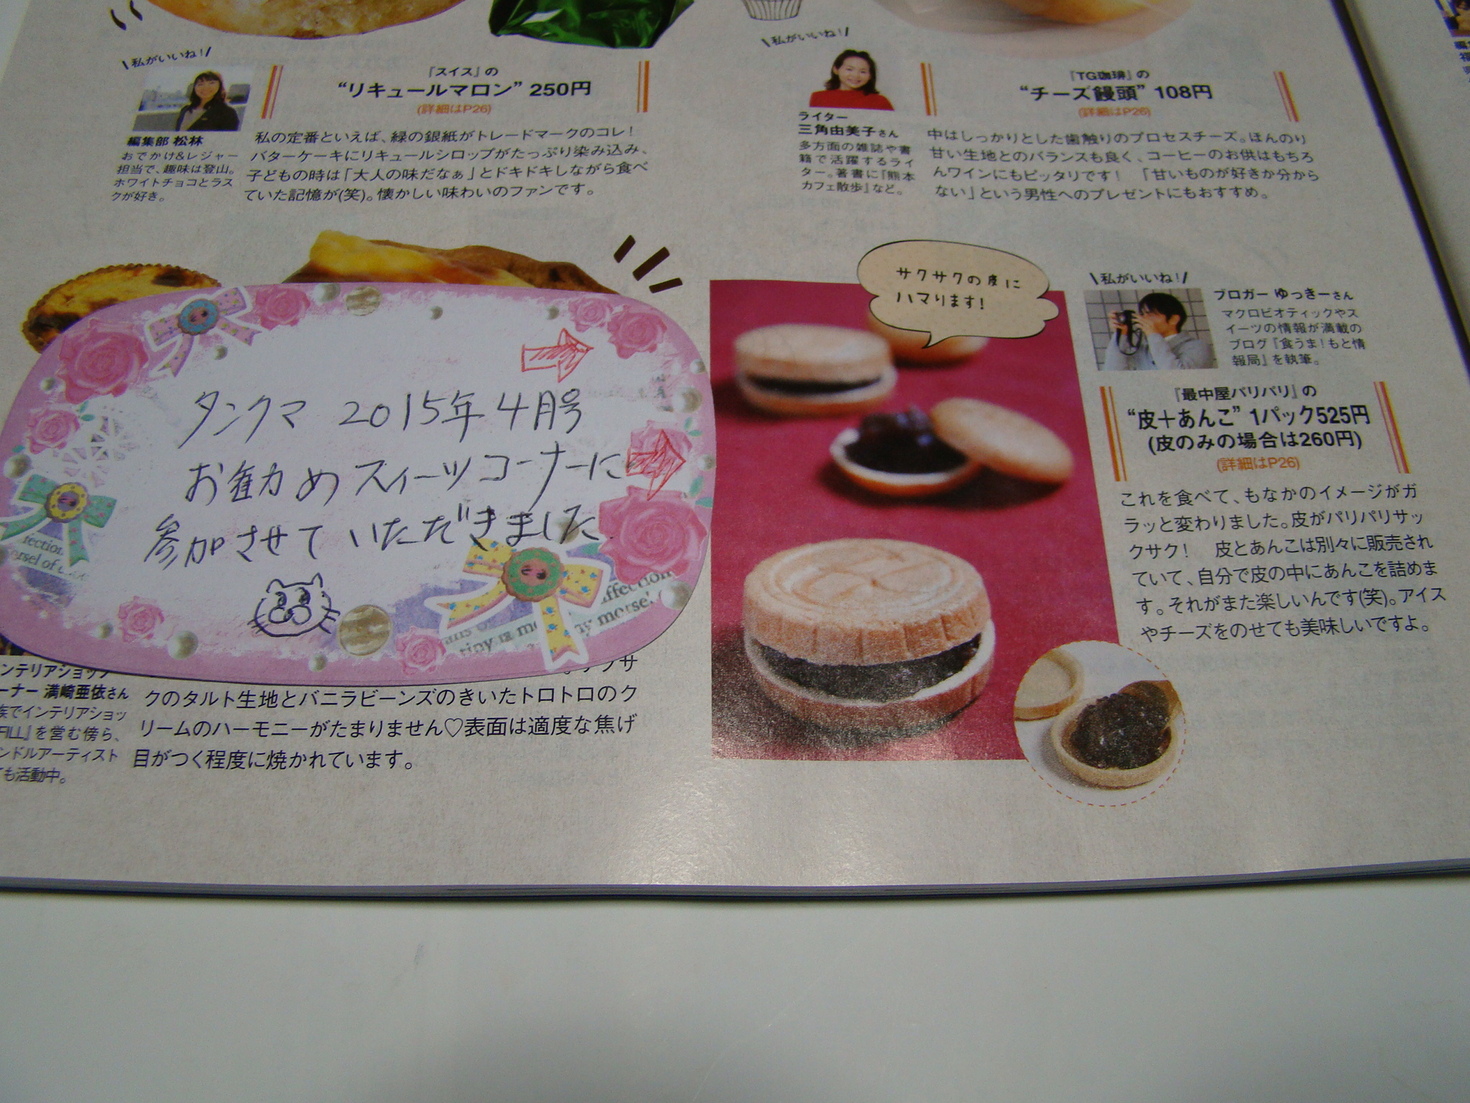 \私がいいね!/
編集部 松林
おでかけ&レジャー
担当で、趣味は登山。
ホワイトチョコとラス
クが好き。
『スイス』の
“リキュールマロン” 250円
(詳細はP26)
私の定番といえば、緑の銀紙がトレードマークのコレ!
バターケーキにリキュールシロップがたっぷり染み込み、
子どもの時は「大人の味だなぁ」とドキドキしながら食べ
ていた記憶が(笑)。懐かしい味わいのファンです。
\私がいいね!/
ライター
三角由美子さん
多方面の雑誌や書
籍で活躍するライ
ター。著書に『熊本
カフェ散歩』など。
『TG珈琲』の
“チーズ饅頭” 108円
(詳細はP26)
中はしっかりとした歯触りのプロセスチーズ。ほんのり
甘い生地とのバランスも良く、コーヒーのお供はもちろ
んワインにもピッタリです! 「甘いものが好きか分から
ない」という男性へのプレゼントにもおすすめ。
タンクマ 2015年4月号
お勧めスィーツコーナーに
参加させていただきました
ンテリアショップ
ーナー 満崎亜依さん
族でインテリアショッ
FILL』を営む傍ら、
ンドルアーティスト
も活動中。
クのタルト生地とバニラビーンズのきいたトロトロのク
リームのハーモニーがたまりません♡表面は適度な焦げ
目がつく程度に焼かれています。
サクサクの皮に
ハマります!
\私がいいね!/
ブロガー ゆっきーさん
マクロビオティックやス
イーツの情報が満載の
ブログ『食うま!もと情
報局』を執筆。
『最中屋パリパリ』の
“皮+あんこ” 1パック525円
(皮のみの場合は260円)
(詳細はP26)
これを食べて、もなかのイメージがガ
ラッと変わりました。皮がパリパリサッ
クサク! 皮とあんこは別々に販売され
ていて、自分で皮の中にあんこを詰めま
す。それがまた楽しいんです(笑)。アイス
やチーズをのせても美味しいですよ。